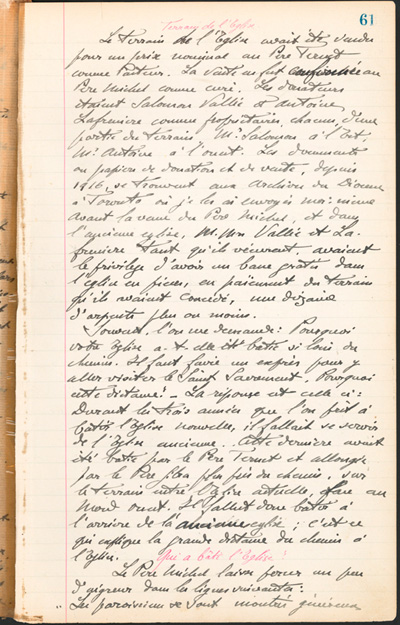 61
Terrain de l'Eglise
Le terrain de l'Eglise avait été vendu
pour un prix nominal au Père
comme Pasteur. La vente en fut confirmée au
Père Michel comme curé. Les donateurs
étaient Salomon Vallée et Antoine
Lafrenière comme propriétaires, chacun, d'une
partie du terrain. Mr Salomon à l'Est,
Mr Antoine à l'ouest. Les documents
ou papiers de donation et de vente, depuis
1916, se trouvent aux Archives du Diocese
à Toronto où je les ai envoyés moi-même
avant la venue du Père Michel, et dans
l'ancienne eglise, M.Mrs Vallée et La-
frenière tant qu'ils vécurent, avaient
le privilege d'avoir un banc gratis dans
l'eglise en pierre, en paiement du terrain
qu'ils avaient concédé, une dizaine
d'arpents plus ou moins.
Souvent, l'on me demande: Pourquoi
votre Eglise a-t-elle été bâtie si loin du
chemin. Il faut faire un exprès pour y
aller visiter le Saint Sacrement. Pourquoi
cette distance? - La réponse est celle-ci:
Durant les trois années que l'on prit à
bâtir l'Eglise nouvelle, il fallait se servir
de l'Eglise ancienne. Cette derniere avait
été bâtie par le Père et allongée
par le Père plus près du chemin, sur
le terrain entre l'Eglise actuelle, face au
Nord ouest. Il fallut donc bâtir à
l'arrière de l'ancienne eglise; c'est ce
qui explique la grande distance du chemin à
l'Eglise.
Qui a bâti l'Eglise?
Le Père Michel laisse percer un peu
d'aigreur dans les lignes suivantes:
"Les paroissiens se sont montrés généreux